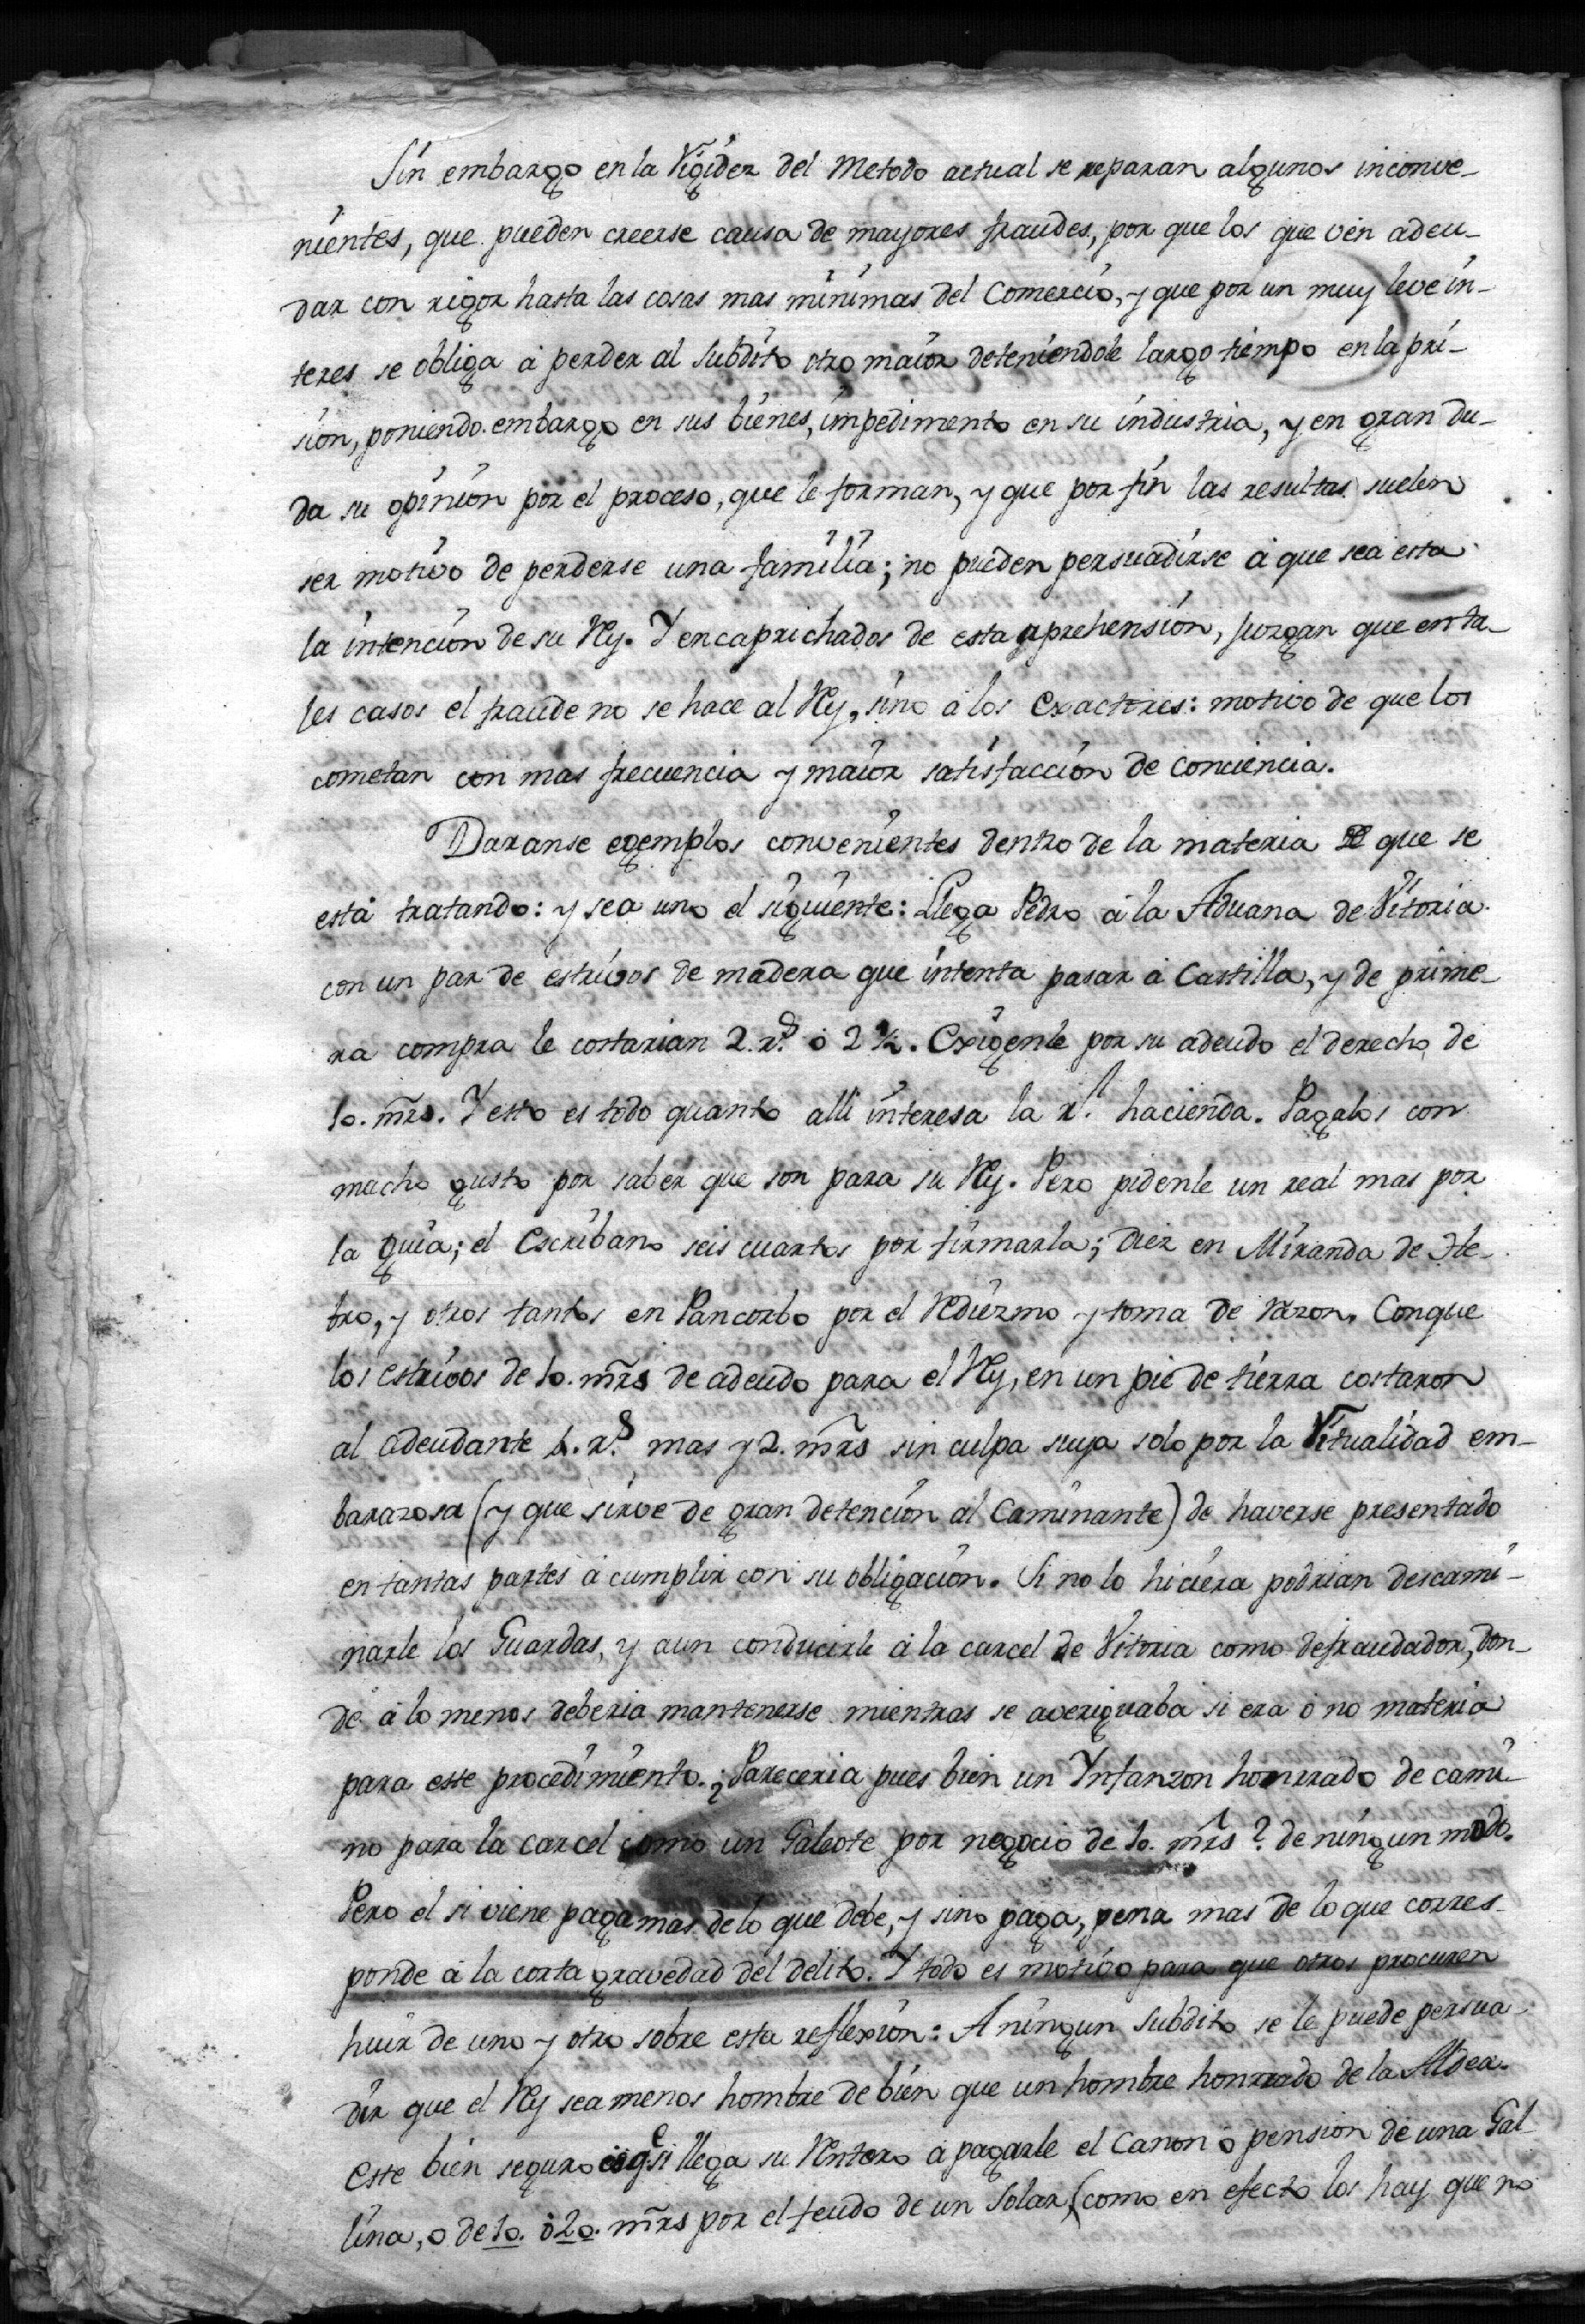 Sin embargo en la Rigidez del Metodo actual se reparan algunos inconve-
nientes, que pueden creerse causa de mayores fraudes, por que los que vén adeu-
dar con rigor hasta las cosas mas minimas del Comercio, y que por un muy leve in-
teres se obliga á perder al subdito otro maior deteniendole largo tiempo en la pri-
sion, poniendo embargo en sus bienes, impedimento en su industria, y en gran du-
da su opinion por el proceso, que le forman, y que por fin las resultas suelen
ser motivo de perderse una familia; no pueden persuadirse á que sea esta
la intencion de su Rey. Y encaprichados de esta aprehension, juzgan que en ta-
les casos el fraude no se hace al Rey, sino á los Exactores: motivo de que los
cometan con mas frecuencia y maior satisfaccion de conciencia.
Daranse egemplos convenientes dentro de la materia que se
está tratando: y sea uno el siguiente: Llega Pedro á la Aduana de Vitoria
con un par de estrivos de madera que intenta pasar á Castilla, y de prime-
ra compra le costarian 2. r.s ó 2 ½. Exigenle por su adeudo el derecho de
10. mrs. Y esto es todo quanto alli interesa la r.l hacienda. Pagalos con
mucho gusto por saber que son para su Rey. Pero pidenle un real mas por
la guia; el Escribano seis cuartos por firmarla; Diez en Miranda de He-
bro, y otros tantos en Pancorbo por el Rediezmo y toma de razon. Conque
los estrivos de 10. mrs de adeudo para el Rey, en un pie de tierra costaron
al adeudante 4. r.s mas y 2. mrs sin culpa suya solo por la Ritualidad em-
barazosa (y que sirve de gran detencion al Caminante) de haverse presentado
en tantas partes á cumplir con su obligacion. Si no lo hiciera podrian descami-
narle los Guardas, y aun conducirle á la carcel de Vitoria como defraudador, don-
de á lo menos deberia mantenerse mientras se averiguaba si era ó no materia
para esse procedimiento. ¿Pareceria pues bien un Ynfanzon honrrado de cami-
no para la carcel como un Galeote por negocio de 10. mrs? de ningun modo.
Pero el si viene paga mas de lo que debe, y sino paga, pena mas de lo que corres-
ponde á la corta gravedad del delito. Y todo es motivo para que otros procuren
huir de uno y otro sobre esta reflexion: A ningun subdito se le puede persua-
dir que el Rey sea menos hombre de bien que un hombre honrrado de la Aldea.
Este bien seguro es q.e si llega su Rentero á pagarle el Canon ó pension de una Gal-
lina, o de 10. ó 20. mrs por el feudo de un Solar, (como en efecto los hay que no